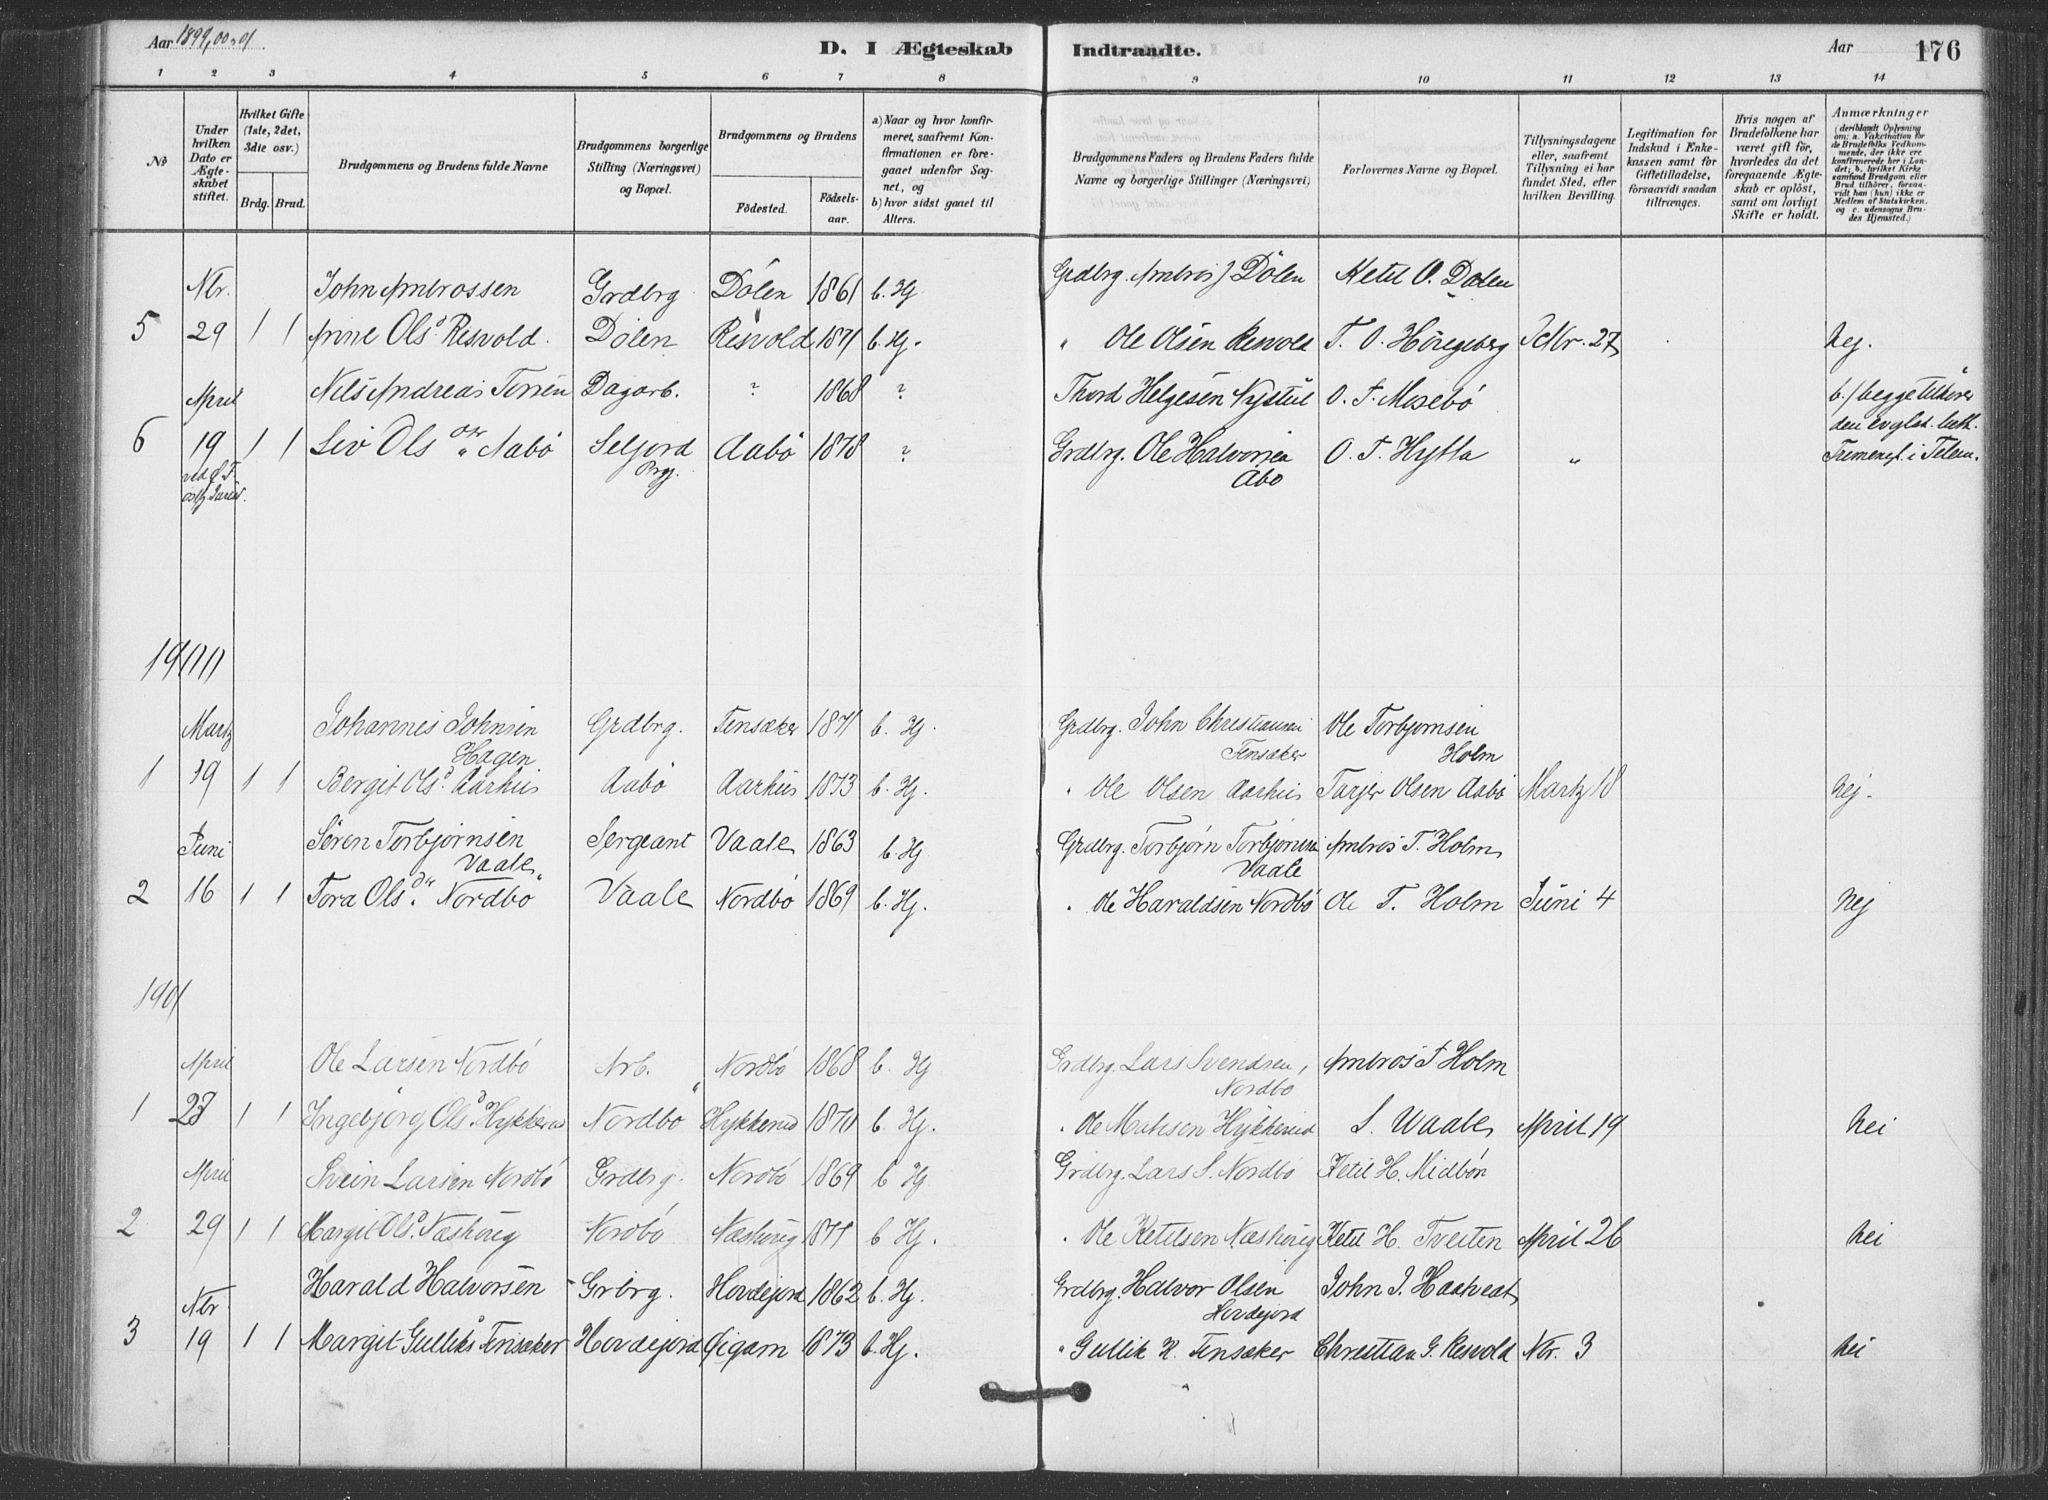 Aar 1899, 00-01.
D. I Ægteskab Indtraadte.
Aar 176
1 2 3 4 5 6 7 8 9 10 11 12 13 14
No
Under hvilken Dato er Ægteskabet stiftet.
Hvilket Gifte (1ste, 2det, 3die osv.)
Brdg. Brud.
Brudgommens og Brudens fulde Navne
Brudgommens borgerlige Stilling (Næringsvei) og Bopæl.
Brudgommens og Brudens
Fødested. Fødselsaar.
a) Naar og hvor konfirmeret, saafremt Konfirmationen er foregaaet udenfor Sognet, og
b) hvor sidst gaaet til Alters.
Brudgommens Faders og Brudens Faders fulde Navne og borgerlige Stillinger (Næringsvei)
Forlovernes Navne og Bopæl.
Tillysningsdagene eller, saafremt Tillysning ei har fundet Sted, efter hvilken Bevilling.
Legitimation for Indskud i Enkekassen samt for Giftetilladelse, forsaavidt saadan tiltrænges.
Hvis nogen af Brudefolkene har været gift før, hvorledes da det foregaaende Ægteskab er opløst, samt om lovligt Skifte er holdt.
Anmærkninger
(deriblandt Oplysning om: a. Vakcination for de Brudefolks Vedkommende, der ikke ere konfirmerede her i Landet; b. hvilket Kirkesamfund Brudgom eller Brud tilhører, forsaavidt han (hun) ikke er Medlem af Statskirken, og c. udensogns Brudes Hjemsted.)
Nbr. John Ambrossen Grdbrg Dölen 1861 b. Hj Grdbrg. Ambros J Dölen Ketil O. Dalen
5 29 1 1 Anne Olsd Resvold. Dölen Resvold 1871 b. Hj. " Ole Olsen Resvold T. O. Höregberg Nbr. 27 nej.
April Nils Andreas Dagarb. ? 1868 ? Thord Helgesen Nystul O. T. Mosebö b./ begge tilhører
6 19 1 1 Liv Ols Aabö Seljord Aabö 1878 ? Grdbrg. Ole Halvorsen O. T. Hytta " den evglsk. luth.
Prgj. Åbo Frimenh. i Telem.
1900
Martz Johannes Johnsen Grdbrg. Tensæker 1871 b. Hj. Grdbrg. John Christiansen Ole Torbjornsen
Hagen Tensæker Holm
1 19 1 1 Bergit Olsd Aarhus Aabö Aarhus 1873 b. Hj. " Ole Olsen Aarhus Tarjer Olsen Aabö Martz 18 nej.
Juni Sören Torbjörnsen Sergeant Vaale 1863 b. Hj Grdbrg. Torbjörn Torbjörnsen Ambros T. Holm
Vaale Vaale
2 16 1 1 Tora Ols Nordbö Vaale Nordbö 1869 b. Hj. " Ole Haraldsen Nordbö Ole T. Holm Juni 4 nej
1901
April Ole Larsen Nordbö Arb. Nordbö 1868 b. Hj Grdbrg. Lars Svendsen, Ambros T Holm
Nordbo
1 23 1 1 Ingebjörg Olsd Hykkerud Nordbö Hykkerud 1870 b. Hj. " Ole Hykkerud S. Vaale April 19 nei
April Svein Larsen Nordbö Grdbrg. Nordbö 1869 b Hj Grdbrg. Lars S. Nordbö Ketil H. Midbön
2 29 1 1 Margit Olsd. Næshoug Nordbö Næshoug 1871 b Hj. " Ole Ketilsen Næshoug Ketil H. Tveiten April 26 nei
Nbr Harald Halvorsen Grbrg. Hovdejord 1862 b. Hj. Grdbrg. Halvor Olsen John J. Haatveat
Hovdejord
3 19 1 1 Margit Gulliks Tensæker Hovdejord 1873 b. Hj. " Gullik H. Tensæker Christian G. Resvold Nbr. 3 nei